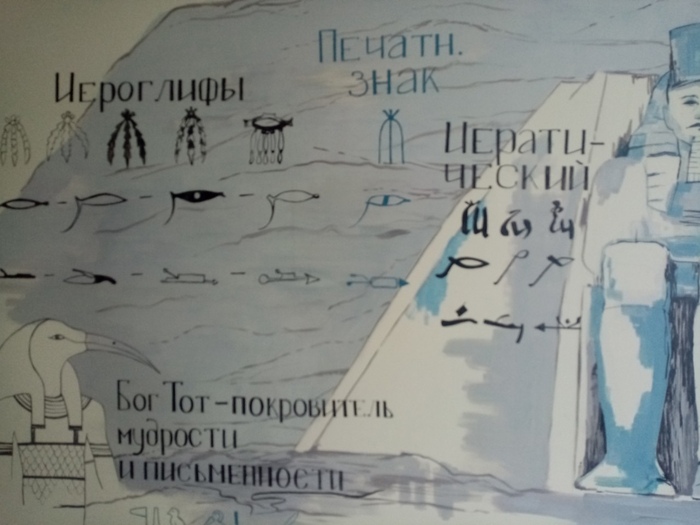 Печатн.
знак
Иероглифы
Иерати-
ческий
Бог Тот - покровитель
мудрости
и письменности